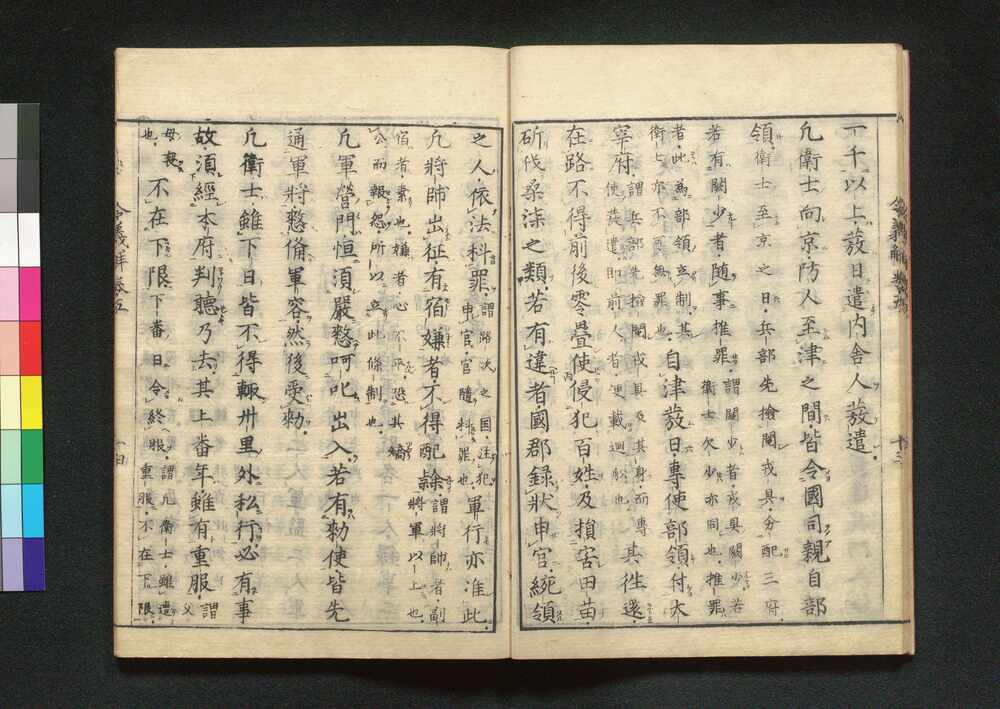 一千以上發日遣内舍人發遣
凢衛士向京防人至津之間皆令國司親自部
領衛士至京之日兵部先撿閲戎具分配三府
若有闕少者随事推罪謂闕少者戎具闕少若衛士欠少亦同也推罪
者此為部領立制其衛士亦不可無罪也自津發日專使部領付大
宰府謂兵部先撿閲戎具及其身而專使發遣即前人者便載廻舩也其徃還
在路不得前後零疊使侵犯百姓及損害田苗
斫伐桒柒之類若有違者國郡録狀申官統領
之人依法科罪謂路次之國注犯申官官随科罪也軍行亦准此
凢將帥出征有宿嫌者不得配隷謂將帥者副將軍以上也
宿者素也嫌者心不平恐其矯公而報怨所以立此條制也
凢軍營門恒須嚴整呵叱出入若有勑使皆先
通軍將整俻軍容然後受勑
凢衛士雖下日皆不得輙卅里外私行必有事
故須經本府判聽乃去其上畨年雖有重服謂父
母喪也不在下限下畨日令終服謂凢衛士雖遭重服不在下限
令義解 卷五
十三
令義解卷五
十四